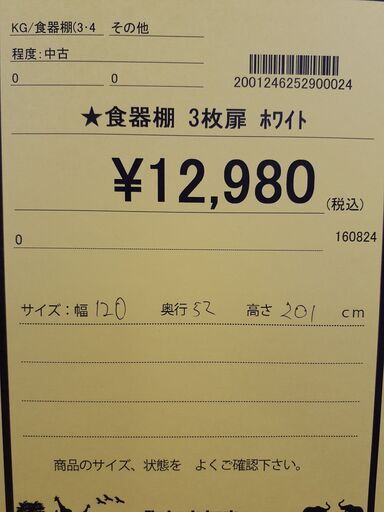 KG/食器棚(3・4 その他
程度:中古
0 0
2001246252900024
★食器棚 3枚扉 ホワイト
¥12,980(税込)
0 160824
サイズ:幅 120 奥行 52 高さ 201 cm
商品のサイズ、状態を よくご確認下さい。